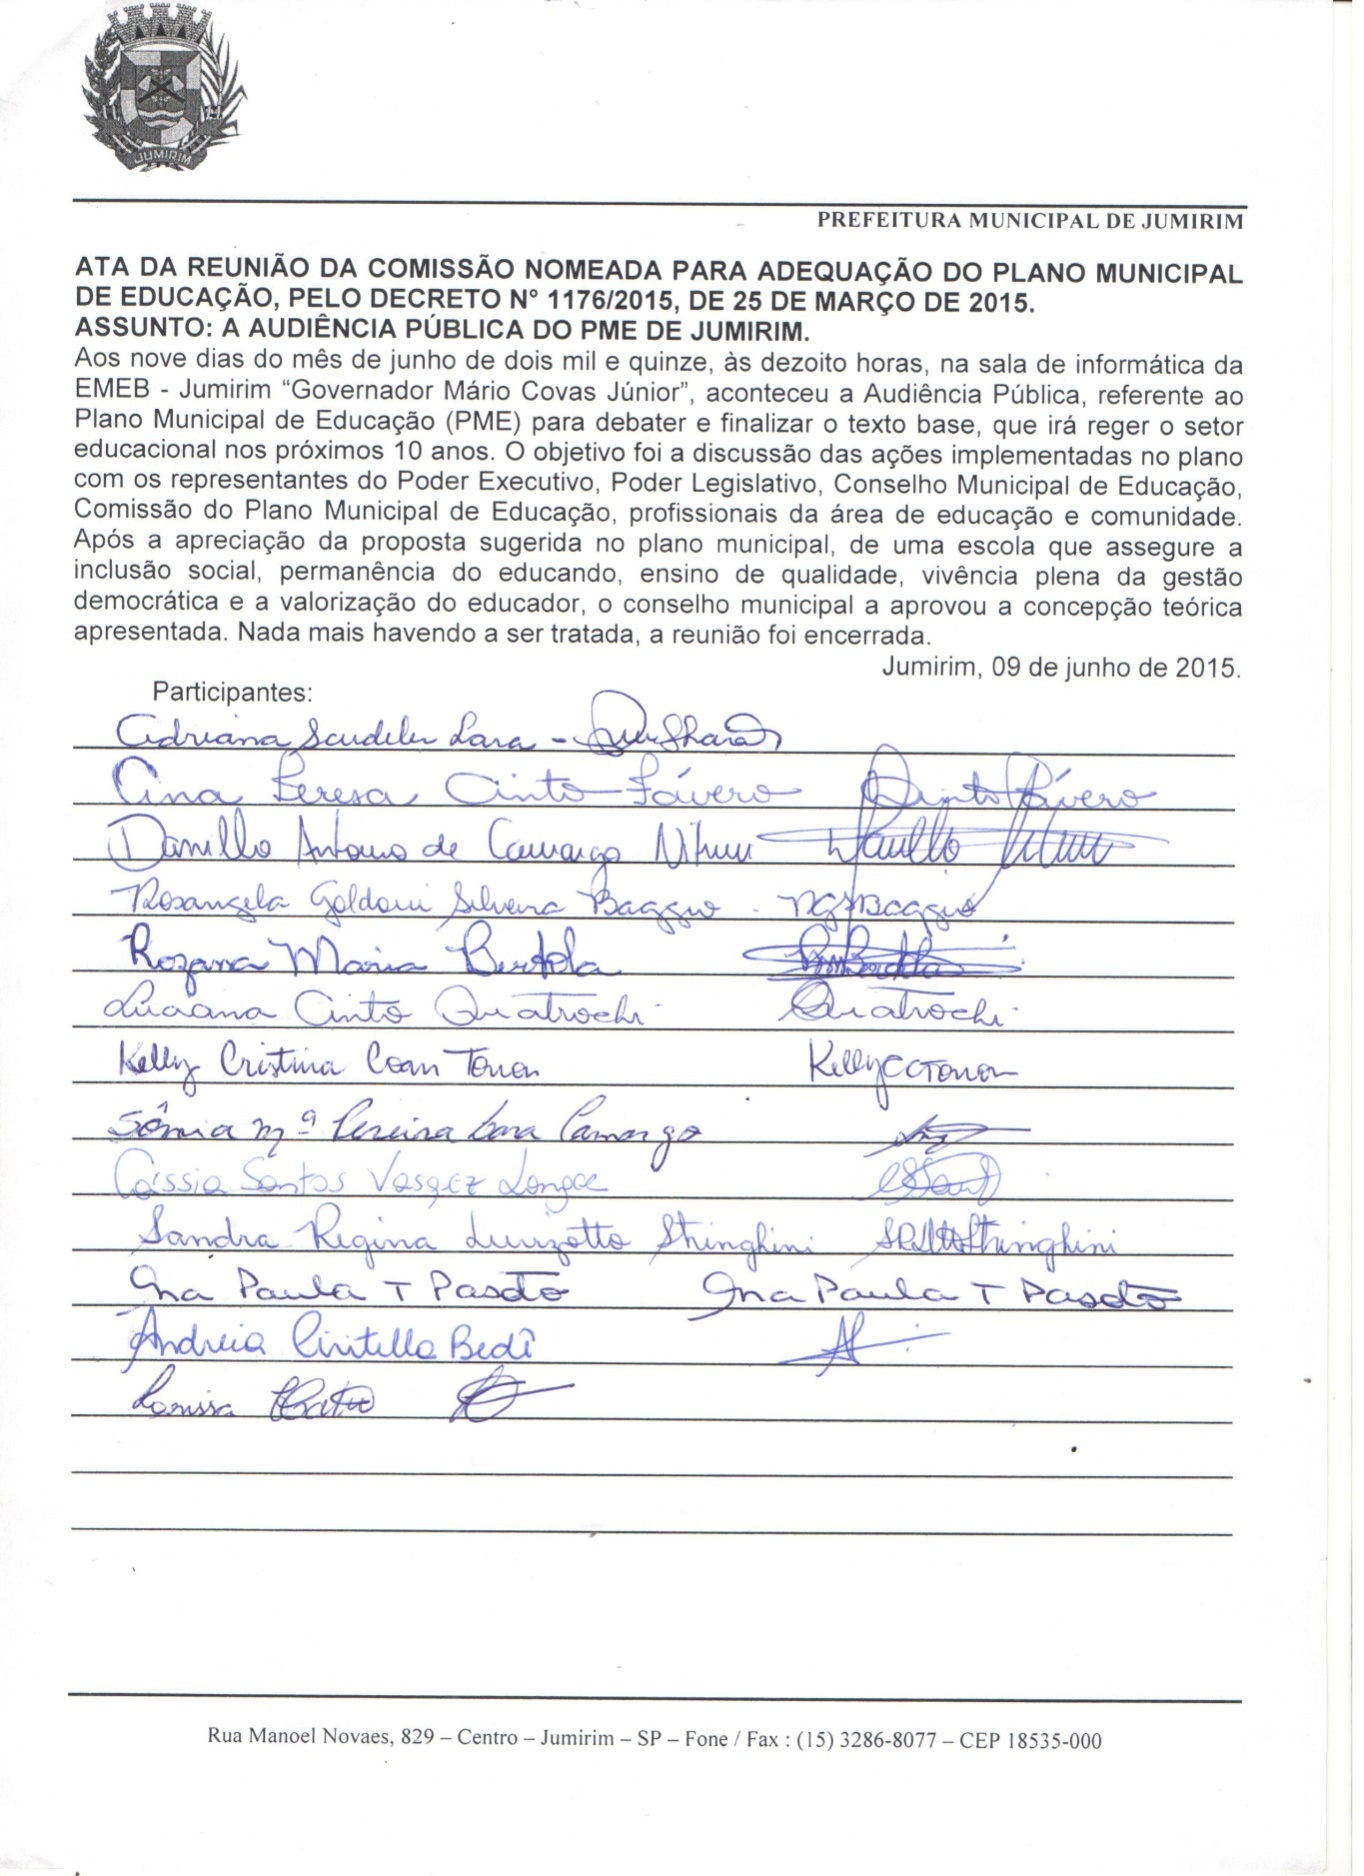 JUMIRIM
PREFEITURA MUNICIPAL DE JUMIRIM
ATA DA REUNIÃO DA COMISSÃO NOMEADA PARA ADEQUAÇÃO DO PLANO MUNICIPAL
DE EDUCAÇÃO, PELO DECRETO N° 1176/2015, DE 25 DE MARÇO DE 2015.
ASSUNTO: A AUDIÊNCIA PÚBLICA DO PME DE JUMIRIM.
Aos nove dias do mês de junho de dois mil e quinze, às dezoito horas, na sala de informática da
EMEB - Jumirim “Governador Mário Covas Júnior”, aconteceu a Audiência Pública, referente ao
Plano Municipal de Educação (PME) para debater e finalizar o texto base, que irá reger o setor
educacional nos próximos 10 anos. O objetivo foi a discussão das ações implementadas no plano
com os representantes do Poder Executivo, Poder Legislativo, Conselho Municipal de Educação,
Comissão do Plano Municipal de Educação, profissionais da área de educação e comunidade.
Após a apreciação da proposta sugerida no plano municipal, de uma escola que assegure a
inclusão social, permanência do educando, ensino de qualidade, vivência plena da gestão
democrática e a valorização do educador, o conselho municipal a aprovou a concepção teórica
apresentada. Nada mais havendo a ser tratada, a reunião foi encerrada.
Jumirim, 09 de junho de 2015.
Participantes:
Adriana Scudeler Lara -
Ana Teresa Cinto Fávero
Danillo Antonio de Camargo
Rosangela Goldoni Silveira Baggio - RGSBaggio
Rozana Maria Bertola
Luciana Cinto Quatrochi Quatrochi
Kelly Cristina Coan Tonon KellyCCTonon
Sônia Mª Pereira Lara Camargo
Cássia Santos Vasquez Longce
Sandra Regina Luvizotto Stringhini
Ana Paula T Pasoto Ana Paula T Pasoto
Andreia Cintella Bedê
Larissa
Rua Manoel Novaes, 829 – Centro – Jumirim – SP – Fone / Fax : (15) 3286-8077 – CEP 18535-000